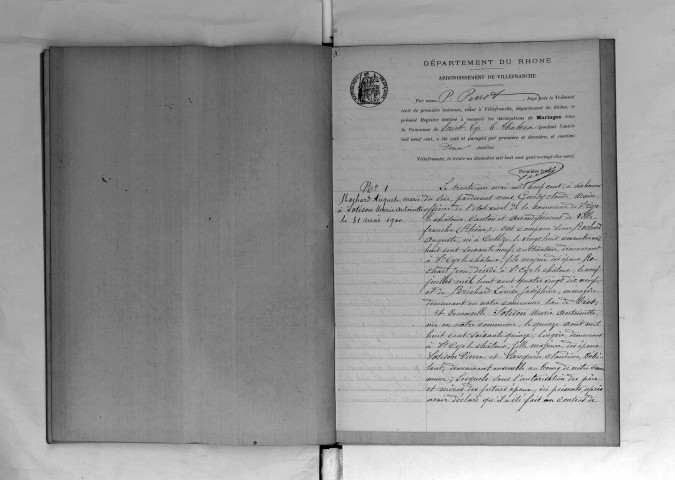 DÉPARTEMENT DU RHONE
ARRONDISSEMENT DE VILLEFRANCHE
Par nous, P. Perrot, Juge près le Tribunal
civil de première instance, séant à Villefranche, département du Rhône, le
présent Registre destiné à recevoir les déclarations de Mariages dans
la Commune de Saint Cyr le Chatoux pendant l'année
mil neuf cent, a été coté et paraphé par première et dernière, et contient
feuillets.
Villefranche, le trente-un décembre mil huit cent quatre-vingt-dix-neuf.
N° 1
Rochard Auguste marié
à Solison Marie Antoinette
le 31 mai 1900
Le trente un mai mil neuf cent à six heures
du soir, pardevant nous Claude maire
officier de l'état civil de la commune de St Cyr
le chatoux, canton et arrondissement de Ville
franche (Rhône) ont comparu sieur Rochard
Auguste, né à le vingt huit novembre
huit cent soixante neuf, cultivateur demeurant
à St Cyr le chatoux, fils majeur des époux Ro
chard Jean, décédé à St Cyr le chatoux, le neuf
juillet mil huit cent quatre vingt dix neuf,
et de Louise Joséphine, ménagère
demeurant en notre commune lieu de
Et demoiselle Solison Marie Antoinette
née en notre commune, le quinze août mil
huit cent soixante quinze, lingère demeurant
à St Cyr le chatoux, fille majeure des époux
Solison Pierre et Claudine,
demeurant ensemble au bourg de notre com
mune; Lesquels sous l'autorisation des père
et mères des futurs époux, ici présents, après
avoir déclaré qu'il a été fait un contrat de